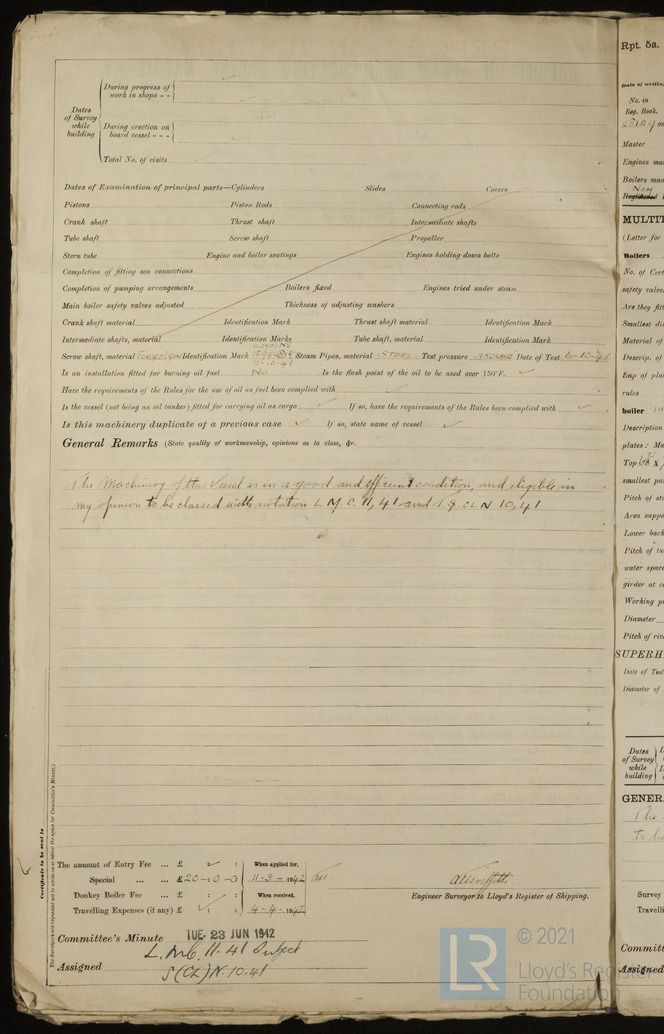 During progress of work in shops - -
Dates of Survey while building
During erection on board vessel - - -
Total No. of visits
Dates of Examination of principal parts—Cylinders Slides Covers
Pistons Piston Rods Connecting rods
Crank shaft Thrust shaft Intermediate shafts
Tube shaft Screw shaft Propeller
Stern tube Engine and boiler seatings Engines holding down bolts
Completion of fitting sea connections
Completion of pumping arrangements Boilers fixed Engines tried under steam
Main boiler safety valves adjusted Thickness of adjusting washers
Crank shaft material Identification Mark Thrust shaft material Identification Mark
Intermediate shafts, material Identification Marks Tube shaft, material Identification Mark
Screw shaft, material Identification Mark Steam Pipes, material STEEL Test pressure Date of Test 6-10-41
Is an installation fitted for burning oil fuel No Is the flash point of the oil to be used over 150°F.
Have the requirements of the Rules for the use of oil as fuel been complied with
Is the vessel (not being an oil tanker) fitted for carrying oil as cargo If so, have the requirements of the Rules been complied with
Is this machinery duplicate of a previous case If so, state name of vessel
General Remarks (State quality of workmanship, opinions as to class, &c.
The Machinery of this Vessel is in a good and efficient condition, and eligible in
my opinion to be classed with notation L M C 11,41 and
10,41
The amount of Entry Fee ... £ : :
Special ... ... £20-0-0
Donkey Boiler Fee ... £ : :
Travelling Expenses (if any) £ : :
When applied for,
11-3-1942
When received,
4-4-1942
Engineer Surveyor to Lloyd's Register of Shipping.
Committee's Minute TUE 23 JUN 1942
Assigned L.M.C. 11.41 Subject
S(CL)N.10.41
Certificate to be sent to
The Surveyors are requested not to write on or below the space for Committee's Minute.
© 2021
LR
Lloyd's Register
Foundation
Rpt. 5a.
No. in
Reg. Book.
Master
Engines
Boilers
MULTI
(Letter for
Boilers
No. of Cer
safety valve
Are they fit
Smallest di
Material of
Descrip. of
Lap of pla
rules
boiler
Description
plates: Ma
Top
smallest pa
Pitch of st
Area suppo
Lower back
Pitch of tu
water space
girder at c
Working p
Diameter
Pitch of riv
SUPERH
Date of Test
Diameter of
Dates of Survey while building
GENER
Survey
Travelli
Committ
Assigned